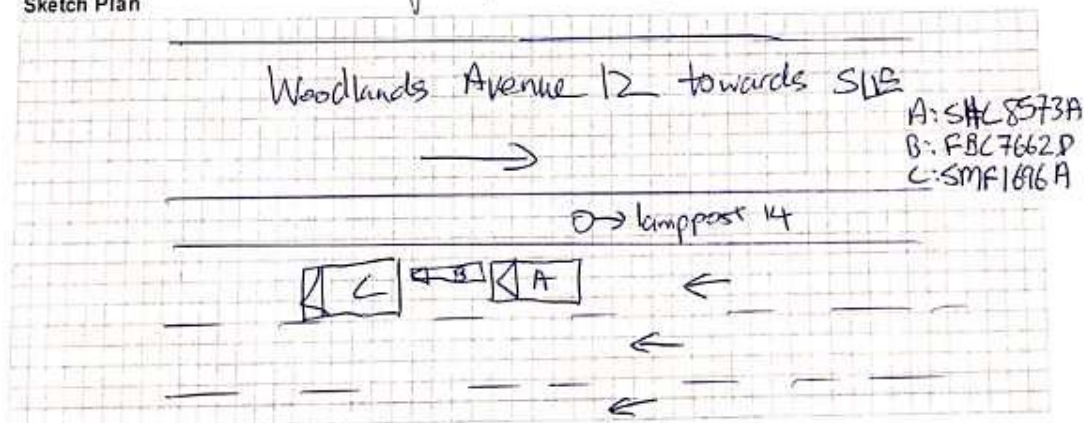 Sketch Plan
Woodlands Avenue 12 towards SLE
A: SHC8573A
B: FBC7662P
C: SMF1696A
lamppost 14
C B A